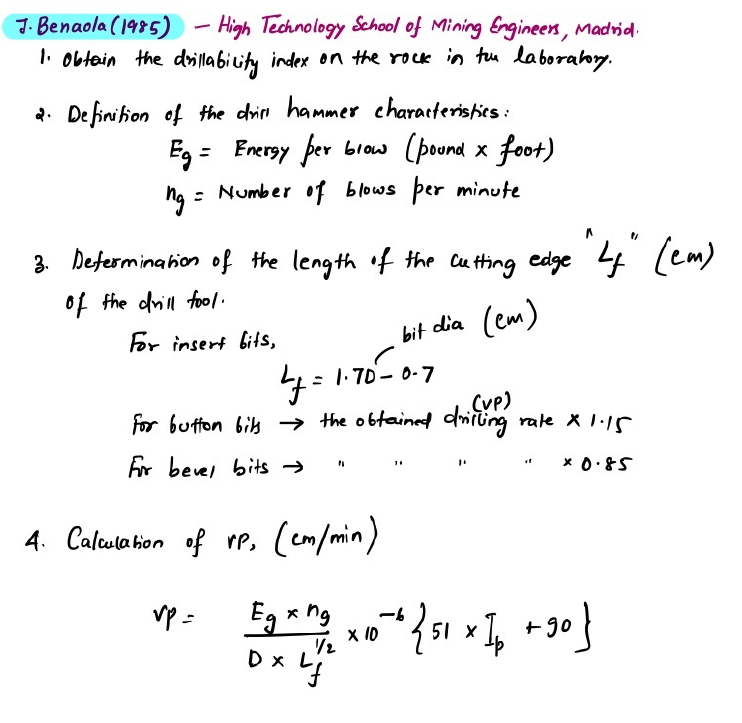 J. Benaola (1985) – High Technology School of Mining Engineers, Madrid.
1. Obtain the drillability index on the rock in the laboratory.
2. Definition of the drill hammer characteristics:
Eg = Energy per blow (pound x foot)
ng = Number of blows per minute
3. Determination of the length of the cutting edge "Lf" (cm)
of the drill tool.
For insert bits,
bit dia (cm)
Lf = 1.7D – 0.7
(vp)
For button bits → the obtained drilling rate x 1.15
For bevel bits → " " " " x 0.85
4. Calculation of vp, (cm/min)
vp = Eg x ng / D x Lf^1/2 x 10^-6 { 51 x Ip + 90 }